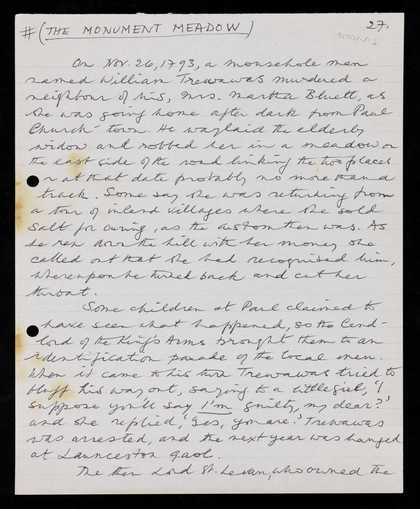 # (THE MONUMENT MEADOW) 27.
On Nov. 26, 1793, a mousehole man
named William Trewavas murdered a
neighbour of his, Mrs. Martha Bluett, as
she was going home after dark from Paul
Church-town. He waylaid the elderly
widow and robbed her in a meadow on
the east side of the road linking the two places
or at that date probably no more than a
track. Some say she was returning from
a tour of inland villages where she sold
salt for curing, as the custom then was. As
he ran down the hill with her money she
called out that she had recognised him,
whereupon he turned back and cut her
throat.
Some children at Paul claimed to
have seen what happened, so the land-
lord of the King's Arms brought them to an
identification parade of the local men.
When it came to his turn Trewavas tried to
bluff his way out, saying to a little girl, 'I
suppose you'll say I'm guilty, my dear?'
and she replied, 'Yes, you are.' Trewavas
was arrested, and the next year was hanged
at Launceston gaol.
The then Lord St. Levan, who owned the